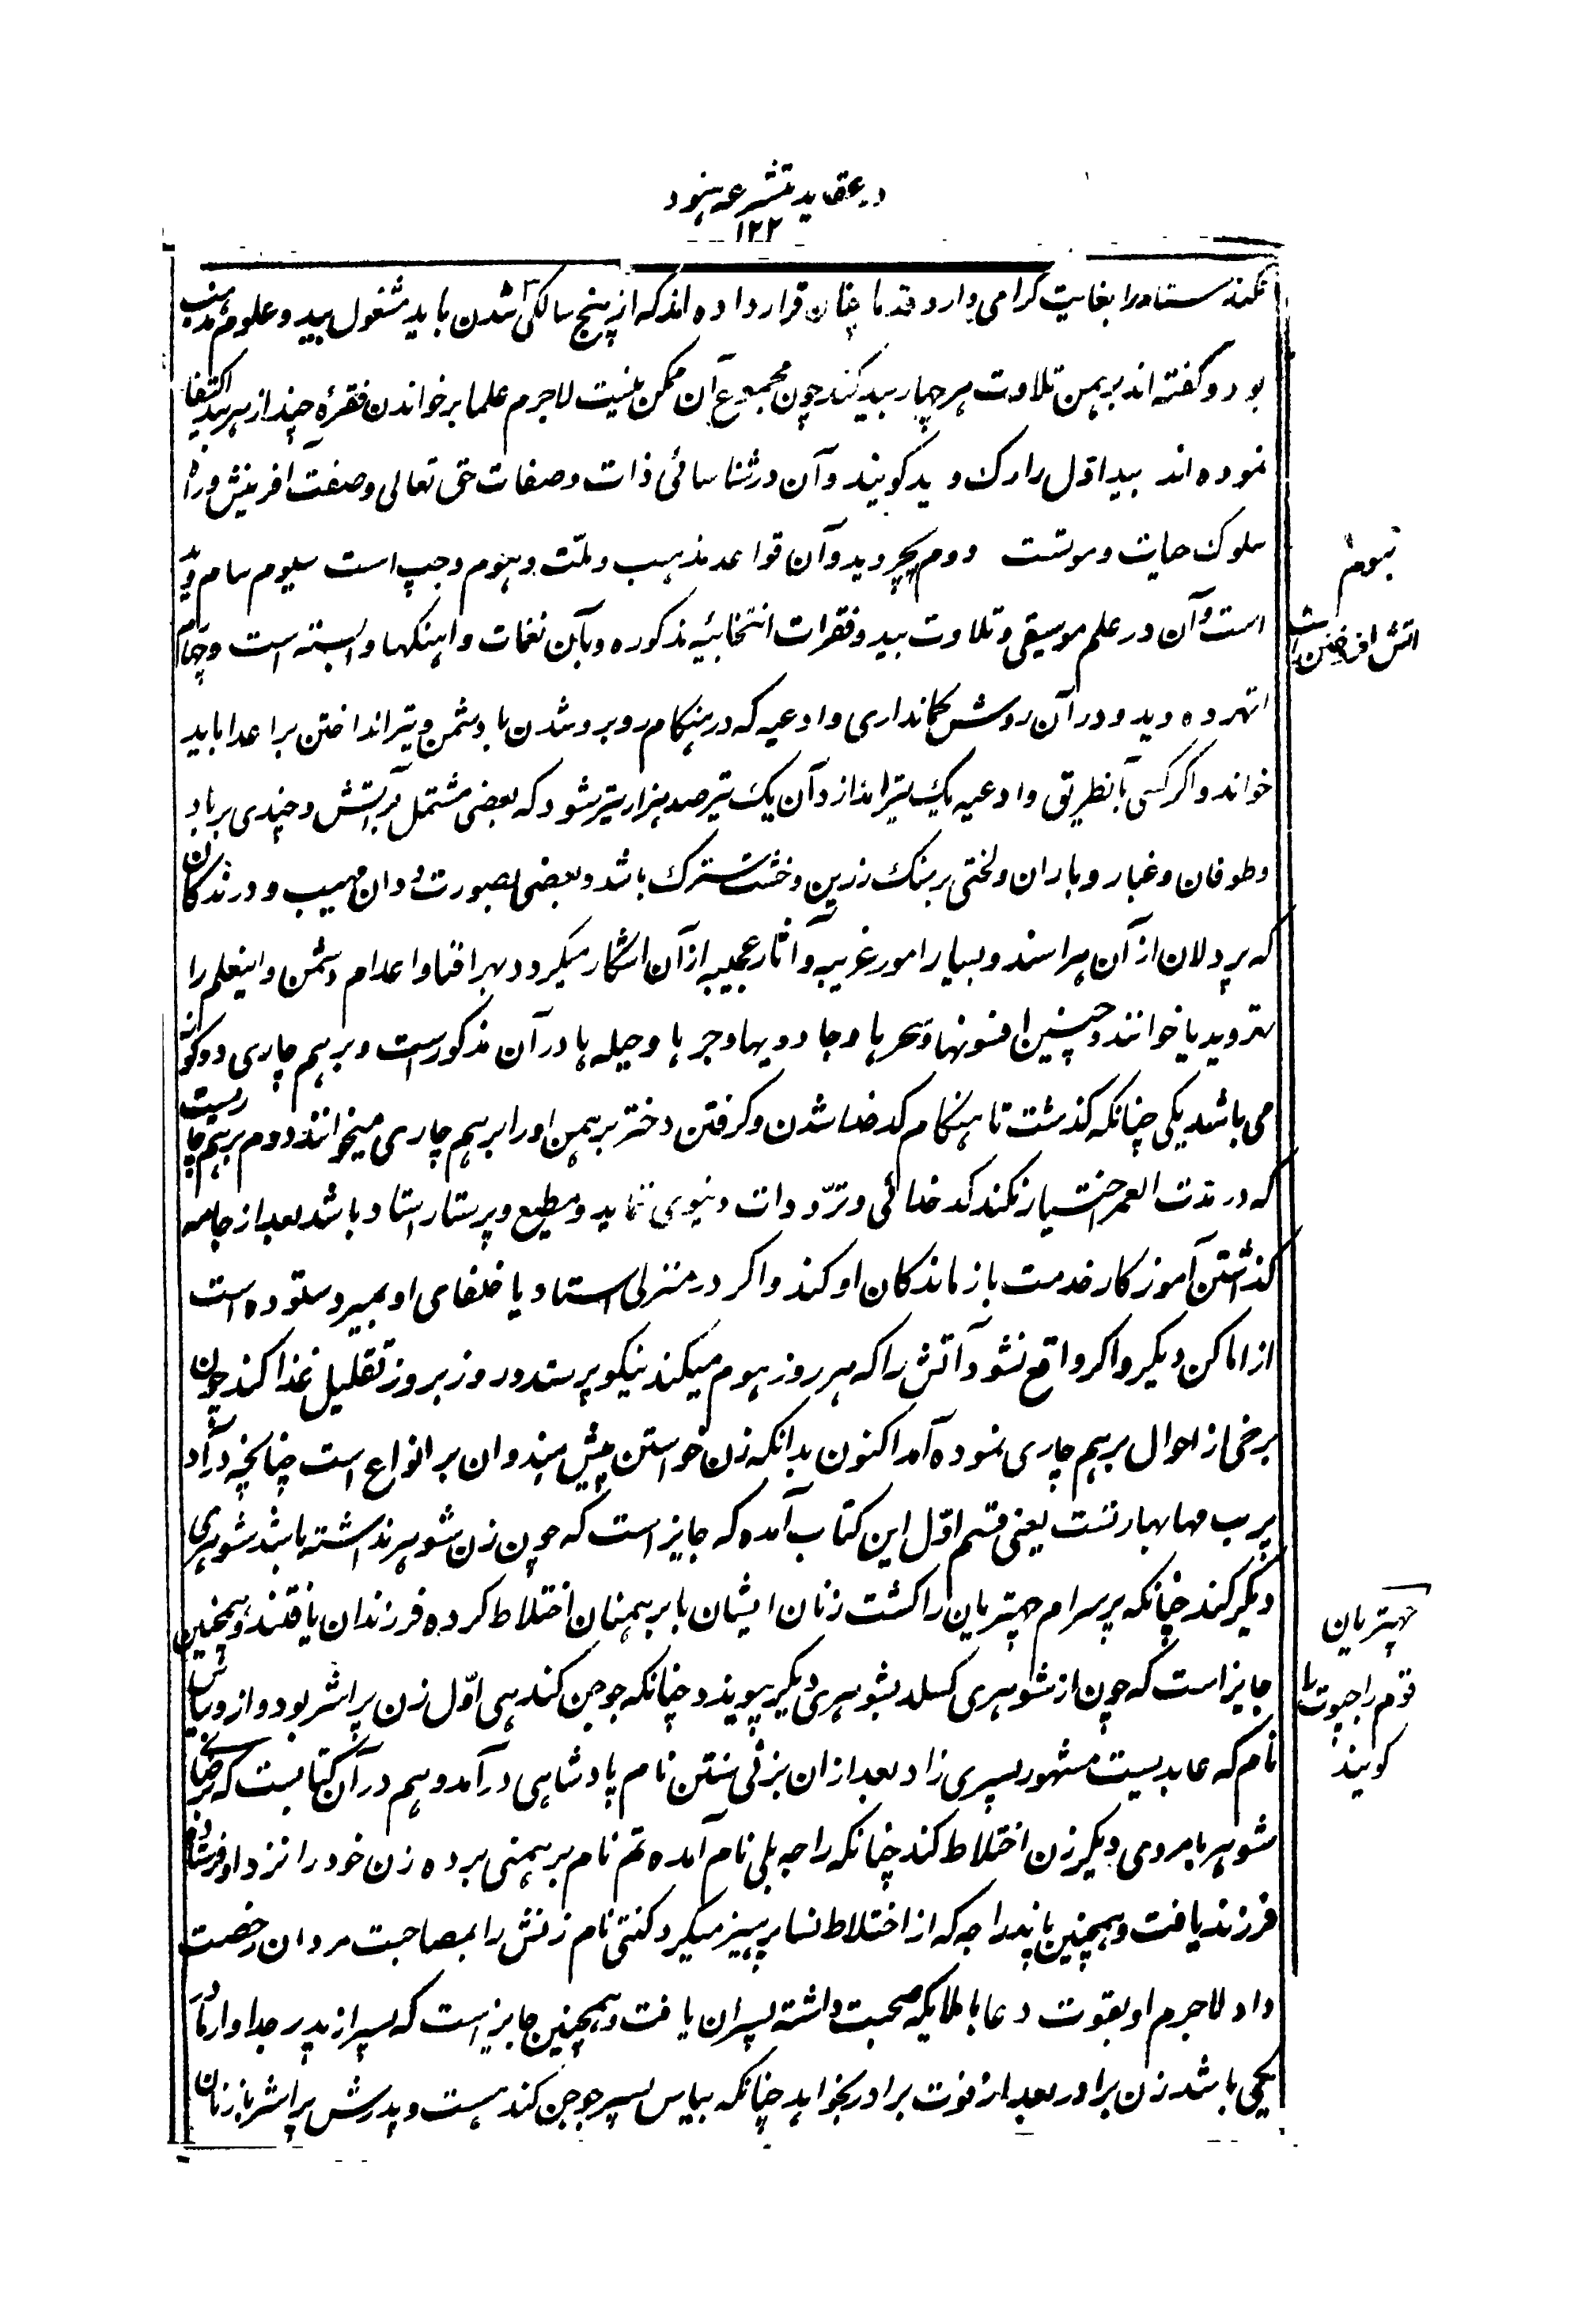 در عقاید متشرعه هنود
۱۲۲
نکند استاد را بغایت گرامی دارد قدما چنان قرار داده اند که از پنج سالگی شدن باید مشغول بید و علوم مذهب
بود و گفته اند برهمن تلاوت هر چهار بید کند چون مجموع آن ممکن نیست لاجرم علما بر خواندن فقرهٔ چند از هر بید اکتفا
نموده اند بید اوّل را رک وید گویند و آن در شناسائی ذات و صفات حق تعالی و صفت آفرینش و راه
سلوک حیات و موتست دوم ججر وید و آن قواعد مذهب و ملّت و هوم و جپ است سیوم سام وید
است و آن در علم موسیقی و تلاوت بید و فقرات انتخابیه مذکوره و بآن نغمات و اهنگها وابسته است و چهارم
اتهروه وید و در آن روش کمانداری و ادعیه که در هنگام روبرو شدن با دشمن و تیر انداختن بر اعدا باید
خواند و اگر کسی بآنطریق و ادعیه یک تیر اندازد آن یک تیر صد هزار تیر شود که بعضی مشتمل بر آتش و چندی بر باد
و طوفان و غبار و باران و لختی بر سنگ زرین و خشت سترک باشد و بعضی بصورت ددان مهیب و درندگان
که پردلان از آن هراسند و بسیار امور غریبه و آثار عجیبه از آن اشکار میگردد بهر افنا و اعدام دشمن و اینعلم را
تروید یا خوانند و چنین افسونها و سحرها و جادویها و جرها و حیله ها در آن مذکور است و برهم چاری دو گونه
می باشد یکی چنانکه گذشت تا هنگام کدخدا شدن و گرفتن دختر برهمن او را برهم چاری میخوانند دوم برهم چاریست
که در مدت العمر اختیار نکند کدخدائی و تردّدات دنیوی ننماید و مطیع و پرستار استاد باشد بعد از جامه
گذاشتن آموزگار خدمت بازماندکان او کند و اگر در منزل استاد یا خلفای او بمیرد ستوده است
از اماکن دیگر و اگر واقع نشود آتش را که هر روز هوم میکند نیکو پرستد و روز بروز تقلیل غذا کند چون
برخی از احوال برهم چاری نموده آمد اکنون بدانکه زن خواستن پیش هندوان بر انواع است چنانچه در آد
پرب مهابهارتست یعنی قسم اوّل این کتاب آمده که جایز است که چون زن شوهر نداشته باشد شوهری
دیگر کند چنانکه پرسرام چهتریان را کشت زنان ایشان با برهمنان اختلاط کرده فرزندان یافتند و همچنین
جایز است که چون از شوهری گسلد بشوهری دیگر پیوندد چنانکه جوجن کندهی اوّل زن پراشر بود و از و بیاس
نام که عابدیست مشهور پسری زاد بعد از ان بزنی سنتن نام پادشاهی در آمد و هم در آن کتابست که برضای
شوهر با مردی دیگر زن اختلاط کند چنانکه راجه بلی نام آمده تم نام برهمنی برده زن خود را نزد او فرستاده
فرزند یافت و همچنین پاندراجه که از اختلاط نسا پرهیز میکرد کنتی نام زنش را بمصاحبت مردان رخصت
داد لاجرم او بقوت دعا با ملایکه صحبت داشته پسران یافت و همچنین جایز است که پسر از پدر جدا و از مادر
یکی باشد زن برادر بعد از فوت برادر بخواهد چنانکه بیاس پسر جوجن کندهست و پدرش پراشر با زنان
هوم
اتش افروختن را است
چهتریان
قوم راجپوت را
گویند